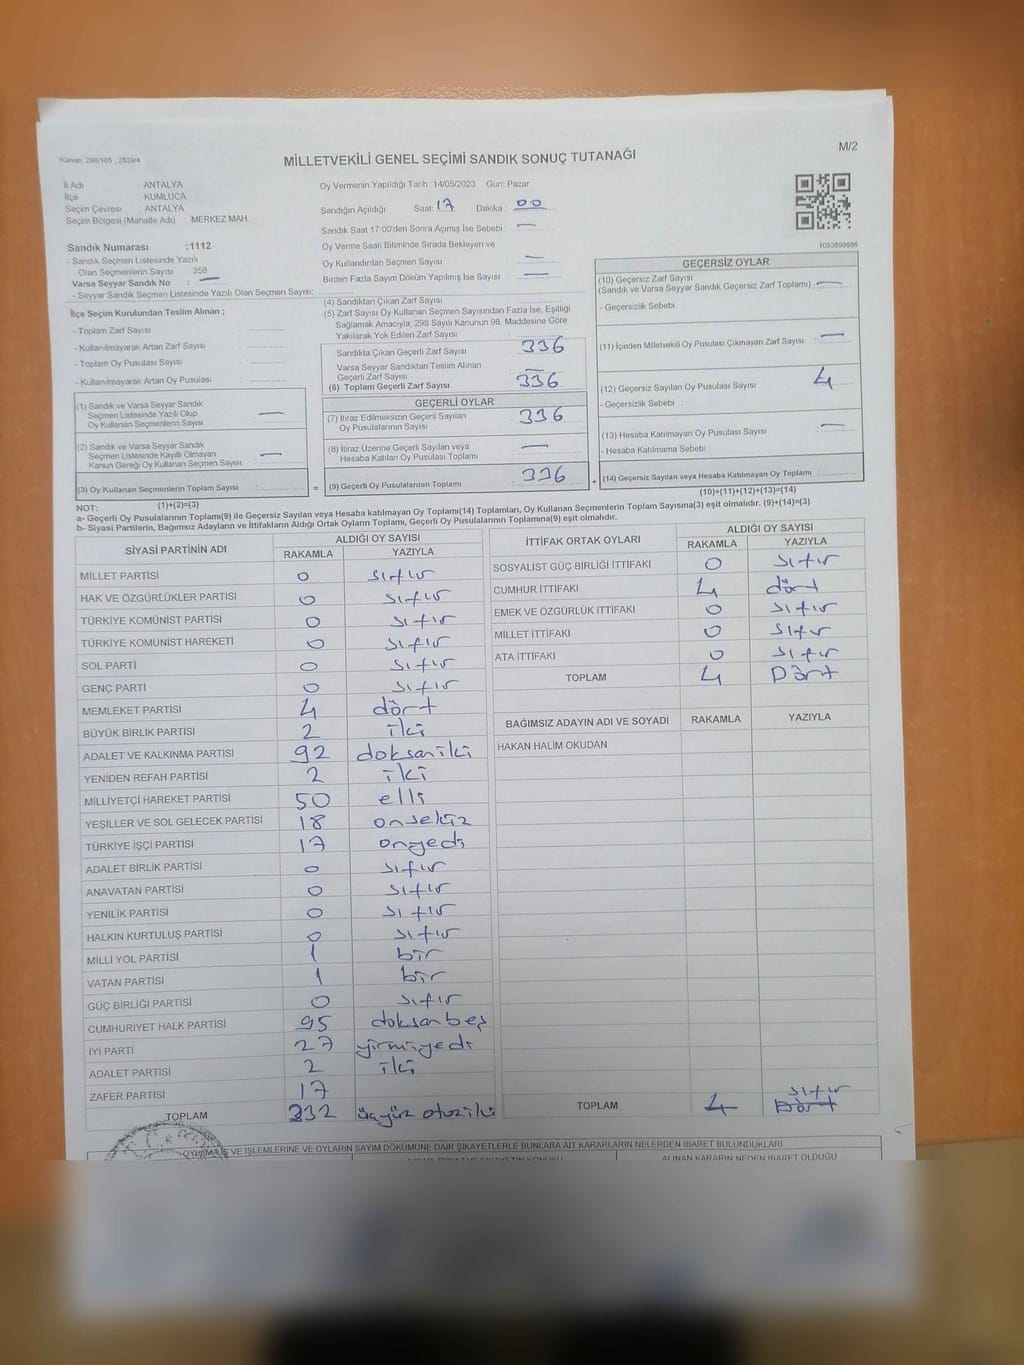 Kanun, 298/105 , 2839/4
M/2
MİLLETVEKİLİ GENEL SEÇİMİ SANDIK SONUÇ TUTANAĞI
İl Adı ANTALYA
İlçe KUMLUCA
Seçim Çevresi ANTALYA
Seçim Bölgesi (Mahalle Adı) MERKEZ MAH.
Sandık Numarası :1112
- Sandık Seçmen Listesinde Yazılı
Olan Seçmenlerin Sayısı 358
Varsa Seyyar Sandık No : —
- Seyyar Sandık Seçmen Listesinde Yazılı Olan Seçmen Sayısı:
Oy Vermenin Yapıldığı Tarih :14/05/2023 Gün: Pazar
Sandığın Açıldığı Saat: 17 Dakika : 00
Sandık Saat 17:00'den Sonra Açımış İse Sebebi : —
Oy Verme Saati Bitiminde Sırada Bekleyen ve
Oy Kullandırılan Seçmen Sayısı : —
Birden Fazla Sayım Döküm Yapılmış İse Sayısı : —
1083699986
İlçe Seçim Kurulundan Teslim Alınan ;
- Toplam Zarf Sayısı :
- Kullanılmayarak Artan Zarf Sayısı :
- Toplam Oy Pusulası Sayısı :
- Kullanılmayarak Artan Oy Pusulası :
(1) Sandık ve Varsa Seyyar Sandık
Seçmen Listesinde Yazılı Olup
Oy Kullanan Seçmenlerin Sayısı —
(2) Sandık ve Varsa Seyyar Sandık
Seçmen Listesinde Kayıtlı Olmayan
Kanun Gereği Oy Kullanan Seçmen Sayısı —
(3) Oy Kullanan Seçmenlerin Toplam Sayısı :
(1)+(2)=(3)
(4) Sandıktan Çıkan Zarf Sayısı
(5) Zarf Sayısı Oy Kullanan Seçmen Sayısından Fazla İse, Eşitliği
Sağlamak Amacıyla; 298 Sayılı Kanunun 98. Maddesine Göre
Yakılarak Yok Edilen Zarf Sayısı
Sandıkta Çıkan Geçerli Zarf Sayısı 336
Varsa Seyyar Sandıktan Teslim Alınan
Geçerli Zarf Sayısı —
(6) Toplam Geçerli Zarf Sayısı 336
GEÇERLİ OYLAR
(7) İtiraz Edilmeksizin Geçerli Sayılan
Oy Pusulalarının Sayısı 336
(8) İtiraz Üzerine Geçerli Sayılan veya
Hesaba Katılan Oy Pusulası Toplamı —
= (9) Geçerli Oy Pusulalarının Toplamı 336 +
GEÇERSİZ OYLAR
(10) Geçersiz Zarf Sayısı
(Sandık ve Varsa Seyyar Sandık Geçersiz Zarf Toplamı) : —
- Geçersizlik Sebebi :
(11) İçinden Milletvekili Oy Pusulası Çıkmayan Zarf Sayısı : —
(12) Geçersiz Sayılan Oy Pusulası Sayısı : 4
- Geçersizlik Sebebi :
(13) Hesaba Katılmayan Oy Pusulası Sayısı : —
- Hesaba Katılmama Sebebi :
(14) Geçersiz Sayılan veya Hesaba Katılmayan Oy Toplamı :
(10)+(11)+(12)+(13)=(14)
NOT:
a- Geçerli Oy Pusulalarının Toplamı(9) ile Geçersiz Sayılan veya Hesaba katılmayan Oy Toplamı(14) Toplamları, Oy Kullanan Seçmenlerin Toplam Sayısına(3) eşit olmalıdır. (9)+(14)=(3)
b- Siyasi Partilerin, Bağımsız Adayların ve İttifakların Aldığı Ortak Oyların Toplamı, Geçerli Oy Pusulalarının Toplamına(9) eşit olmalıdır.
SİYASİ PARTİNİN ADI ALDIĞI OY SAYISI
RAKAMLA YAZIYLA
MİLLET PARTİSİ 0 sıfır
HAK VE ÖZGÜRLÜKLER PARTİSİ 0 sıfır
TÜRKİYE KOMÜNİST PARTİSİ 0 sıfır
TÜRKİYE KOMÜNİST HAREKETİ 0 sıfır
SOL PARTİ 0 sıfır
GENÇ PARTİ 0 sıfır
MEMLEKET PARTİSİ 4 dört
BÜYÜK BİRLİK PARTİSİ 2 iki
ADALET VE KALKINMA PARTİSİ 92 doksaniki
YENİDEN REFAH PARTİSİ 2 iki
MİLLİYETÇİ HAREKET PARTİSİ 50 elli
YEŞİLLER VE SOL GELECEK PARTİSİ 18 onsekiz
TÜRKİYE İŞÇİ PARTİSİ 17 onyedi
ADALET BİRLİK PARTİSİ 0 sıfır
ANAVATAN PARTİSİ 0 sıfır
YENİLİK PARTİSİ 0 sıfır
HALKIN KURTULUŞ PARTİSİ 0 sıfır
MİLLİ YOL PARTİSİ 1 bir
VATAN PARTİSİ 1 bir
GÜÇ BİRLİĞİ PARTİSİ 0 sıfır
CUMHURİYET HALK PARTİSİ 95 doksanbeş
İYİ PARTİ 27 yirmiyedi
ADALET PARTİSİ 2 iki
ZAFER PARTİSİ 17
TOPLAM 332 üçyüz otuziki
İTTİFAK ORTAK OYLARI ALDIĞI OY SAYISI
RAKAMLA YAZIYLA
SOSYALİST GÜÇ BİRLİĞİ İTTİFAKI 0 sıfır
CUMHUR İTTİFAKI 4 dört
EMEK VE ÖZGÜRLÜK İTTİFAKI 0 sıfır
MİLLET İTTİFAKI 0 sıfır
ATA İTTİFAKI 0 sıfır
TOPLAM 4 Dört
BAĞIMSIZ ADAYIN ADI VE SOYADI RAKAMLA YAZIYLA
HAKAN HALİM OKUDAN
TOPLAM 4 sıfır Dört
OYLAMA İŞ VE İŞLEMLERİNE VE OYLARIN SAYIM DÖKÜMÜNE DAİR ŞİKAYETLERLE BUNLARA AİT KARARLARIN NELERDEN İBARET BULUNDUKLARI
ALINAN KARARIN NEDEN İBARET OLDUĞU